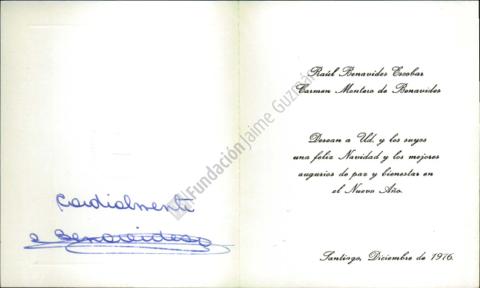 Cordialmente
R Benavides
Raúl Benavides Escobar
Carmen Montero de Benavides
Desean a Ud. y los suyos
una feliz Navidad y los mejores
augurios de paz y bienestar en
el Nuevo Año.
Santiago, Diciembre de 1976.
Fundación Jaime Guzmán